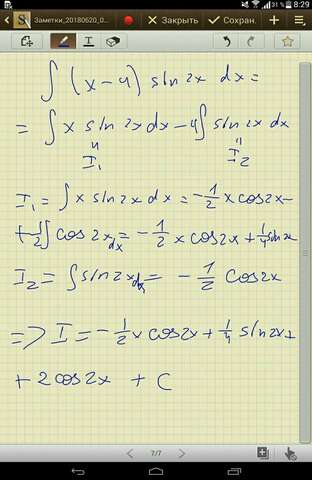 31 % 8:29
Заметки_20180620_0... Закрыть Сохран.
∫ (x-4) sin 2x dx =
= ∫ x sin 2x dx - 4∫ sin 2x dx
" "
I₁ I₂
I₁ = ∫ x sin 2x dx = -1/2 x cos 2x -
+ 1/2∫ cos 2x dx = -1/2 x cos 2x + 1/4 sin x
I₂ = ∫ sin 2x dx = - 1/2 cos 2x
=> I = -1/2 x cos 2x + 1/4 sin 2x +
+ 2 cos 2x + C
7/7